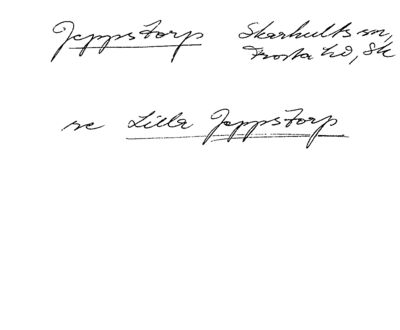 Jeppstorp Skarhults sn,
Frosta hd, Sk
se Lilla Jeppstorp